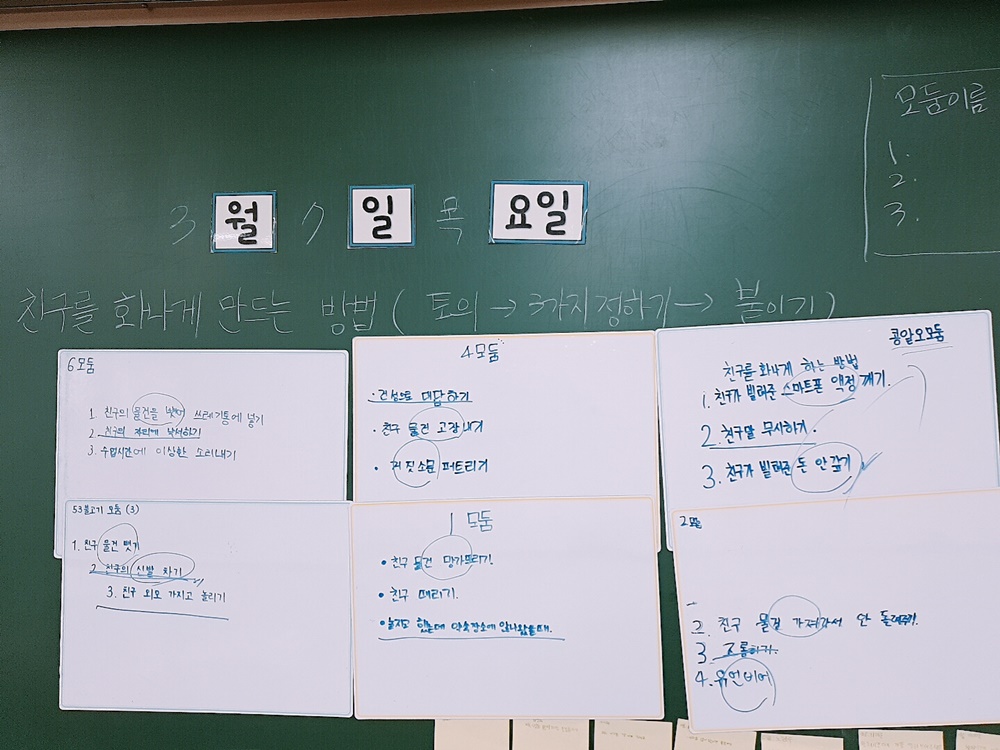 모둠이름
1.
2.
3.
3 월 7 일 목 요일
친구를 화나게 만드는 방법 ( 토의 → 3가지 정하기 → 붙이기 )
6모둠
1. 친구의 물건을 뺏어 쓰레기통에 넣기
2. 친구의 자리에 낙서하기
3. 수업시간에 이상한 소리내기
4모둠
· 건성으로 대답하기
· 친구 물건 고장내기
· 거짓소문 퍼트리기
콩알오모둠
친구를 화나게 하는 방법
1. 친구가 빌려준 스마트폰 액정 깨기.
2. 친구말 무시하기.
3. 친구가 빌려준 돈 안갚기
53불고기 모둠 (3)
1. 친구 물건 뺏기
2. 친구의 신발 차기
3. 친구 외모 가지고 놀리기
1 모둠
• 친구 물건 망가뜨리기.
• 친구 때리기.
• 놀자고 했는데 약속장소에 안나왔을때.
2모둠
2. 친구 물건 가져가서 안 돌려주기.
3. 조롱하기.
4. 유언비어